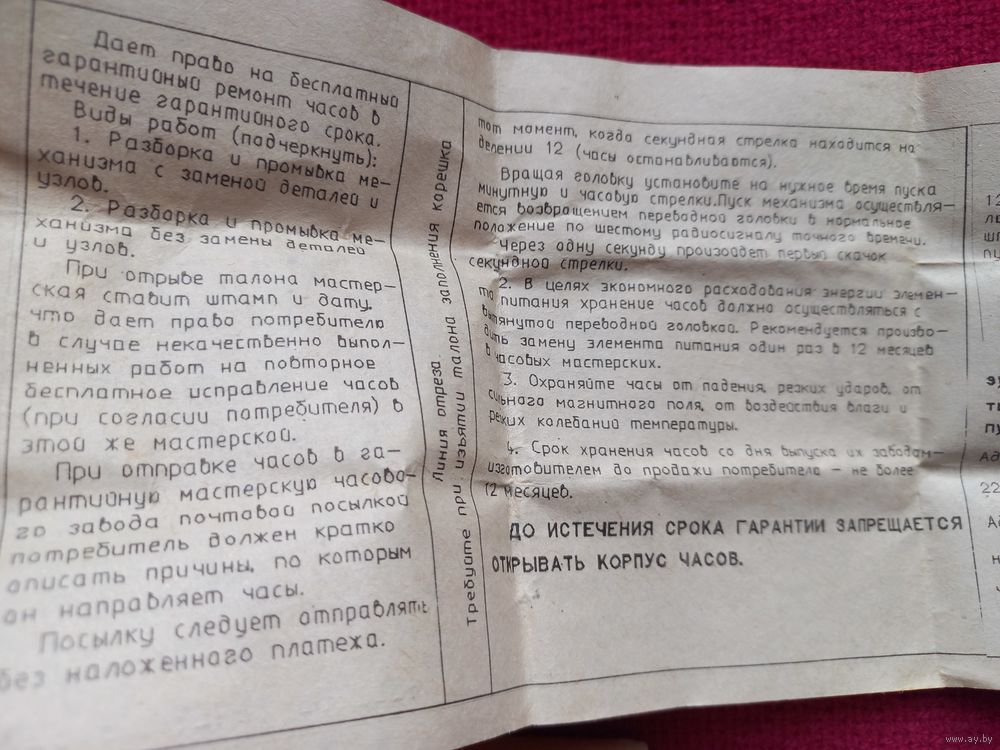 Дает право на бесплатный
гарантийный ремонт часов в
течение гарантийного срока.
Виды работ (подчеркнуть):
1. Разборка и промывка ме-
ханизма с заменой деталей и
узлов.
2. Разборка и промывка ме-
ханизма без замены деталей
и узлов.
При отрыве талона мастер-
ская ставит штамп и дату,
что дает право потребителю
в случае некачественно выпол-
ненных работ на повторное
бесплатное исправление часов
(при согласии потребителя) в
этой же мастерской.
При отправке часов в га-
рантийную мастерскую часово-
го завода почтовой посылкой
потребитель должен кратко
описать причины, по которым
он направляет часы.
Посылку следует отправлять
без наложенного платежа.
Линия отреза
Требуйте при изъятии талона заполнения корешка
тот момент, когда секундная стрелка находится на
делении 12 (часы останавливаются).
Вращая головку установите на нужное время пуска
минутную и часовую стрелки.Пуск механизма осуществля-
ется возвращением переводной головки в нормальное
положение по шестому радиосигналу точного времени.
Через одну секунду произойдет первый скачок
секундной стрелки.
2. В целях экономного расходования энергии элемен-
та питания хранение часов должно осуществляться с
вытянутой переводной головкой. Рекомендуется произво-
дить замену элемента питания один раз в 12 месяцев
в часовых мастерских.
3. Охраняйте часы от падения, резких ударов, от
сильного магнитного поля, от воздействия влаги и
резких колебаний температуры.
4. Срок хранения часов со дня выпуска их заводом-
изготовителем до продажи потребителю – не более
12 месяцев.
ДО ИСТЕЧЕНИЯ СРОКА ГАРАНТИИ ЗАПРЕЩАЕТСЯ
ОТКРЫВАТЬ КОРПУС ЧАСОВ.
12
пу
ти
пу
Ад
22
www.ay.by